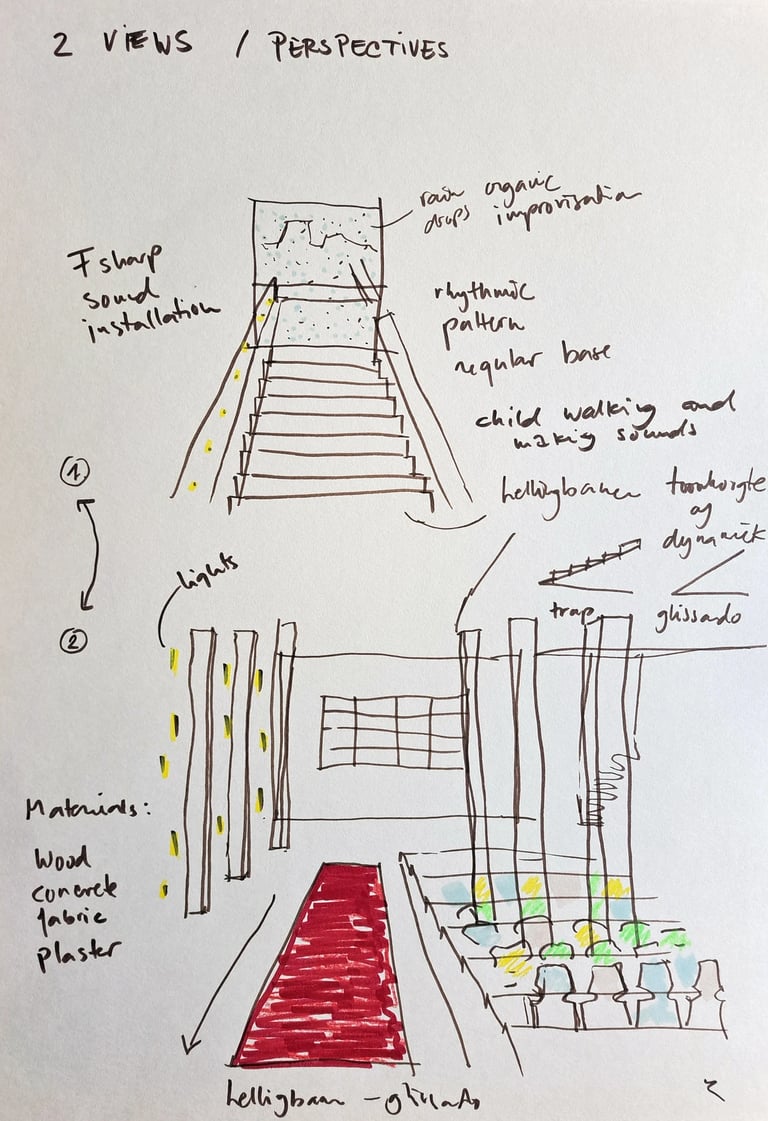 2 VIEWS / PERSPECTIVES
rain organic
drops improvisation
F sharp
sound
installation
rhythmic
pattern
regular base
child walking and
making sounds
hellingbanen toonhoogte
og
dynamiek
trap glissado
1
2
lights
Materials:
Wood
concrete
fabric
plaster
helligbaan - glissado